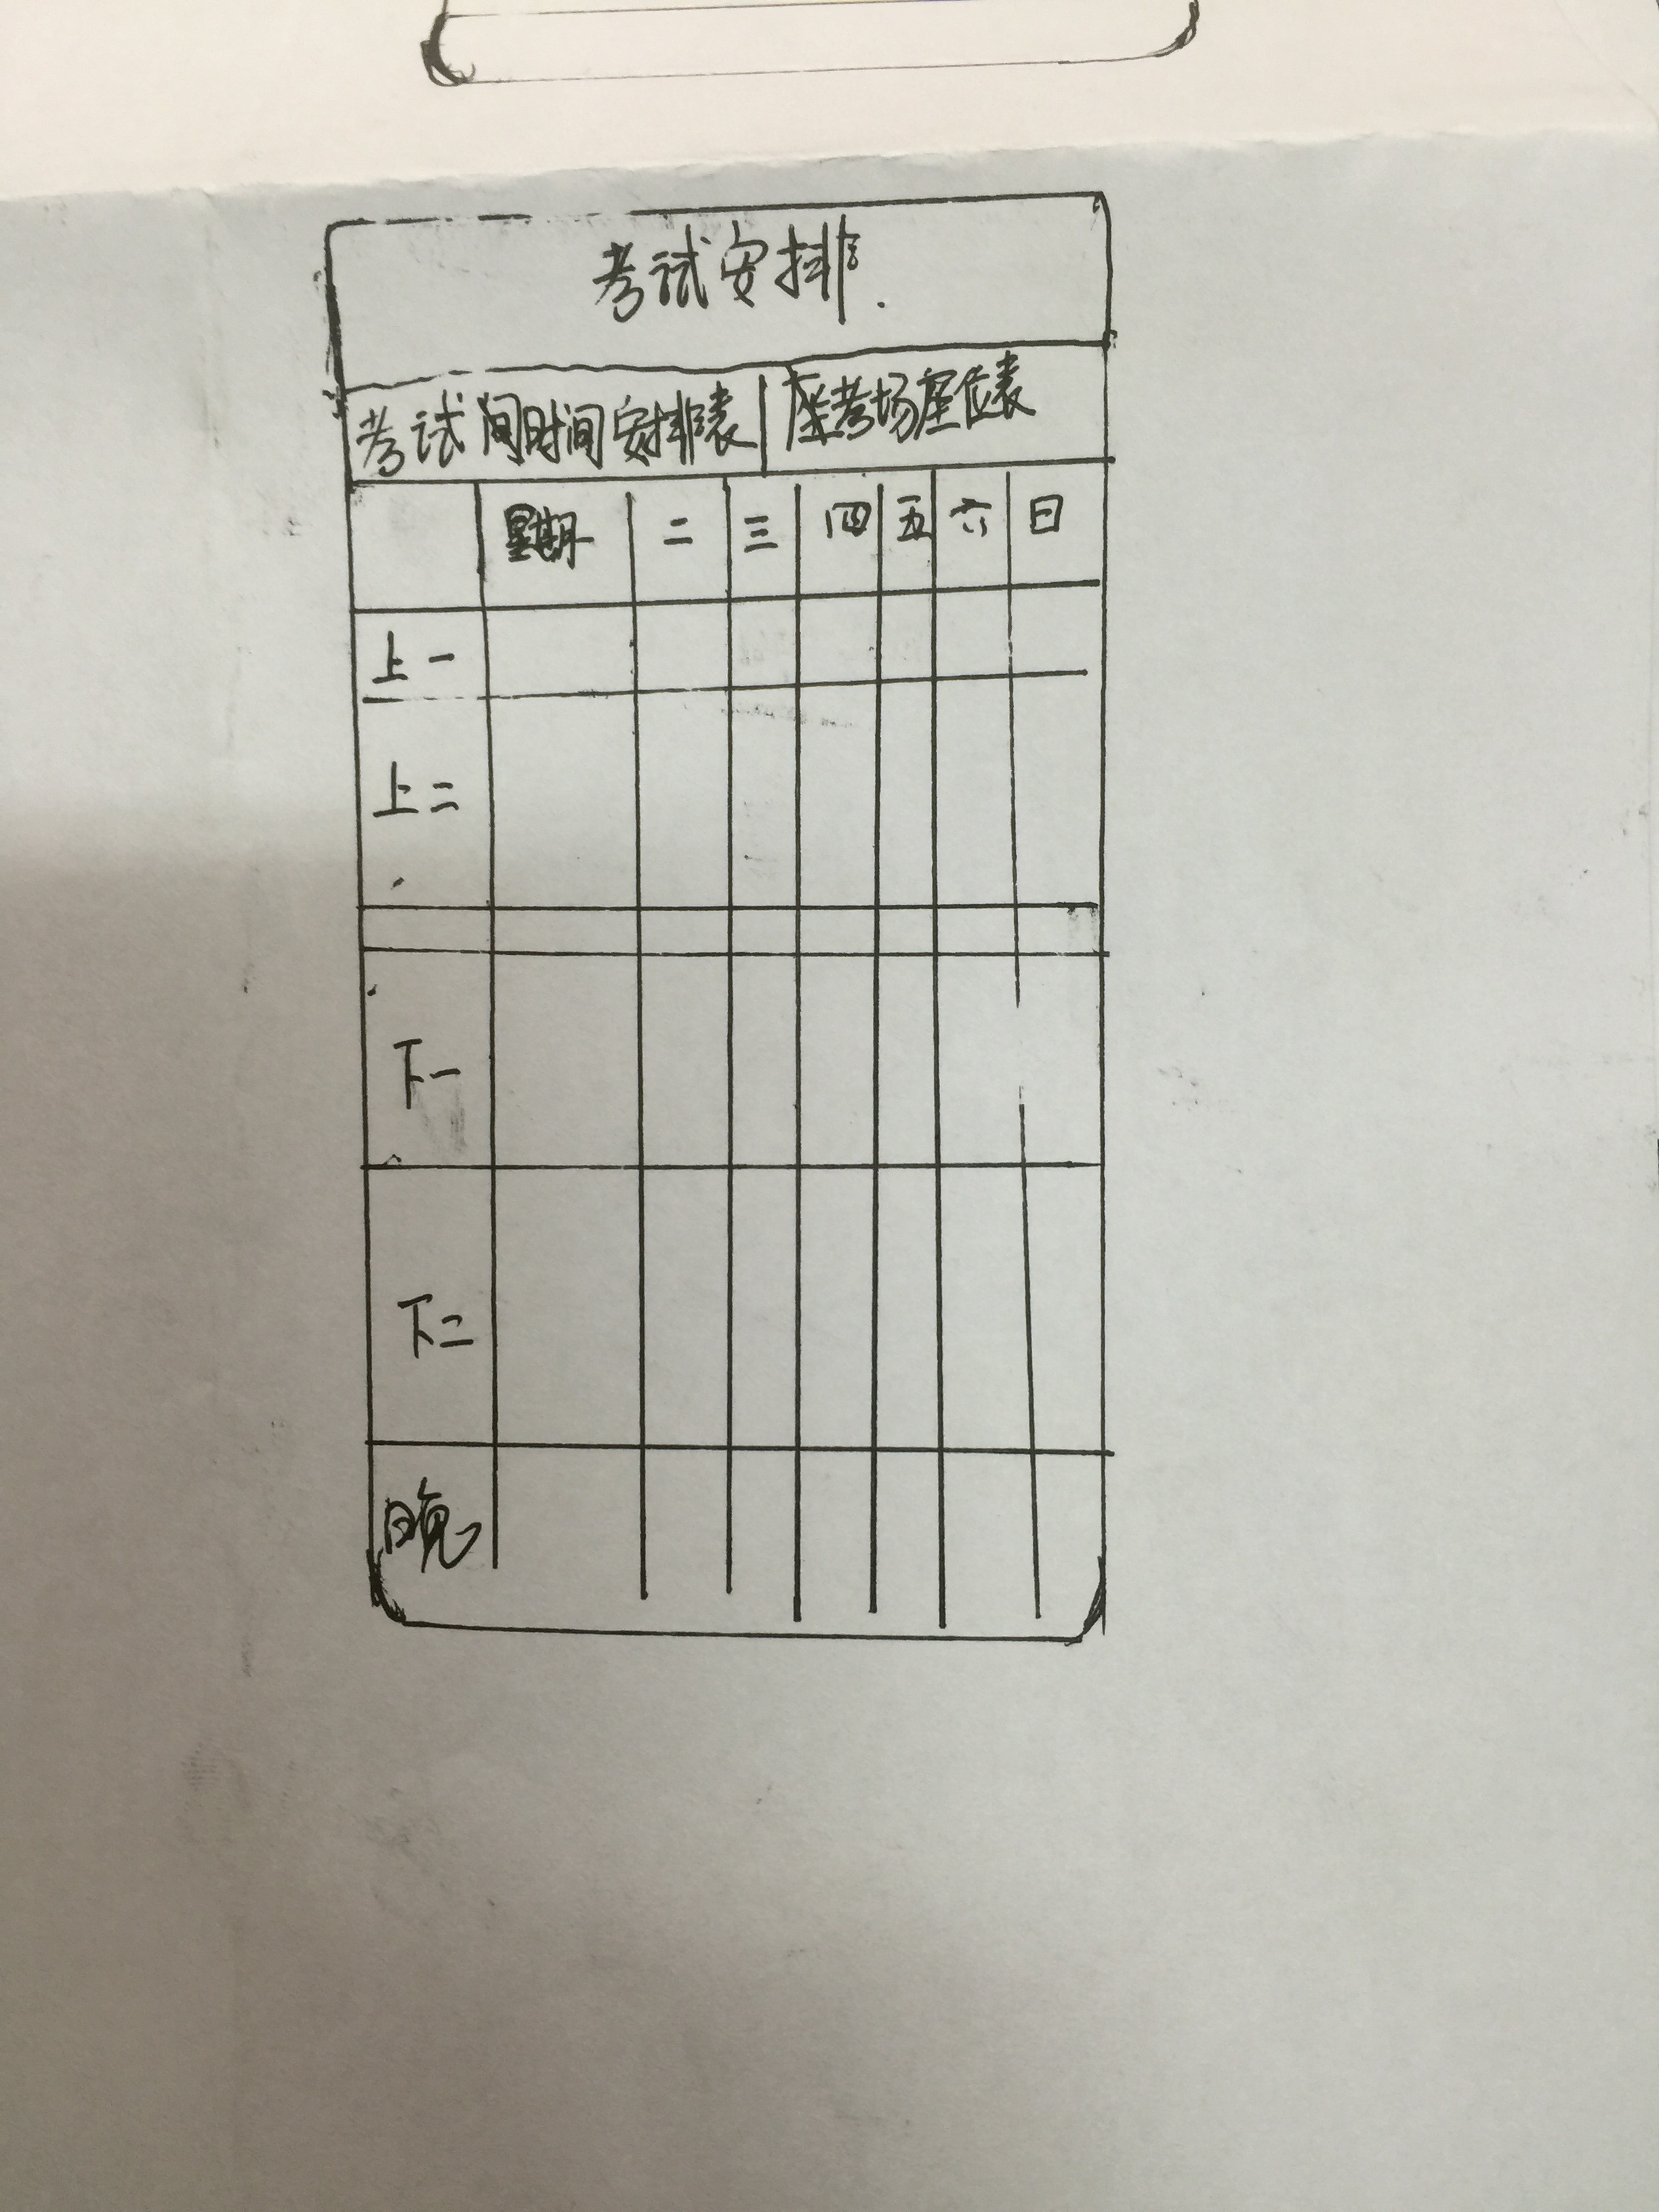 考试安排
考试间时间安排表 座考场座位表
星期一 二 三 四 五 六 日
上一
上二
下一
下二
晚